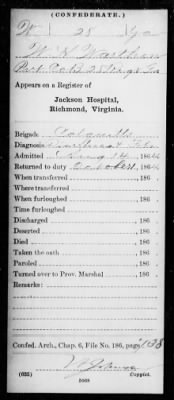 (CONFEDERATE.)
W 28 Ga
Appears on a Register of
Jackson Hospital,
Richmond, Virginia.
Brigade Colquitts
Diagnosis
Admitted Aug 14, 1864
Returned to duty October 1, 1864
When transferred , 186
Where transferred
When furloughed , 186
Time furloughed
Discharged , 186
Deserted , 186
Died , 186
Taken the oath , 186
Paroled , 186
Turned over to Prov. Marshal , 186
Remarks:
Confed. Arch., Chap. 6, File No. 186, page 138
(635) Copyist.